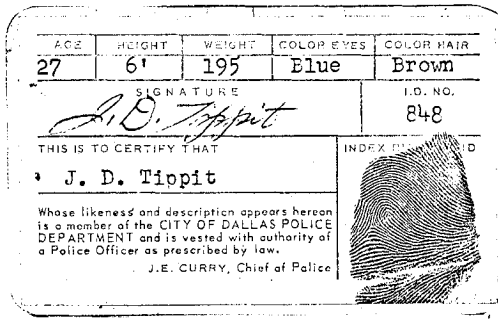 AGE HEIGHT WEIGHT COLOR EYES COLOR HAIR
27 6' 195 Blue Brown
SIGNATURE I.D. NO.
J. D. Tippit 848
THIS IS TO CERTIFY THAT INDEX
J. D. Tippit
Whose likeness and description appears hereon
is a member of the CITY OF DALLAS POLICE
DEPARTMENT and is vested with authority of
a Police Officer as prescribed by law.
J.E. CURRY, Chief of Police